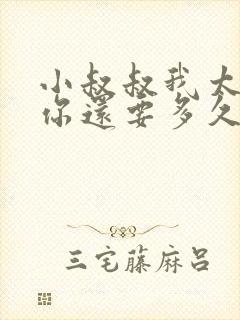 小叔叔我太
你還要多久
三宅藤麻吕